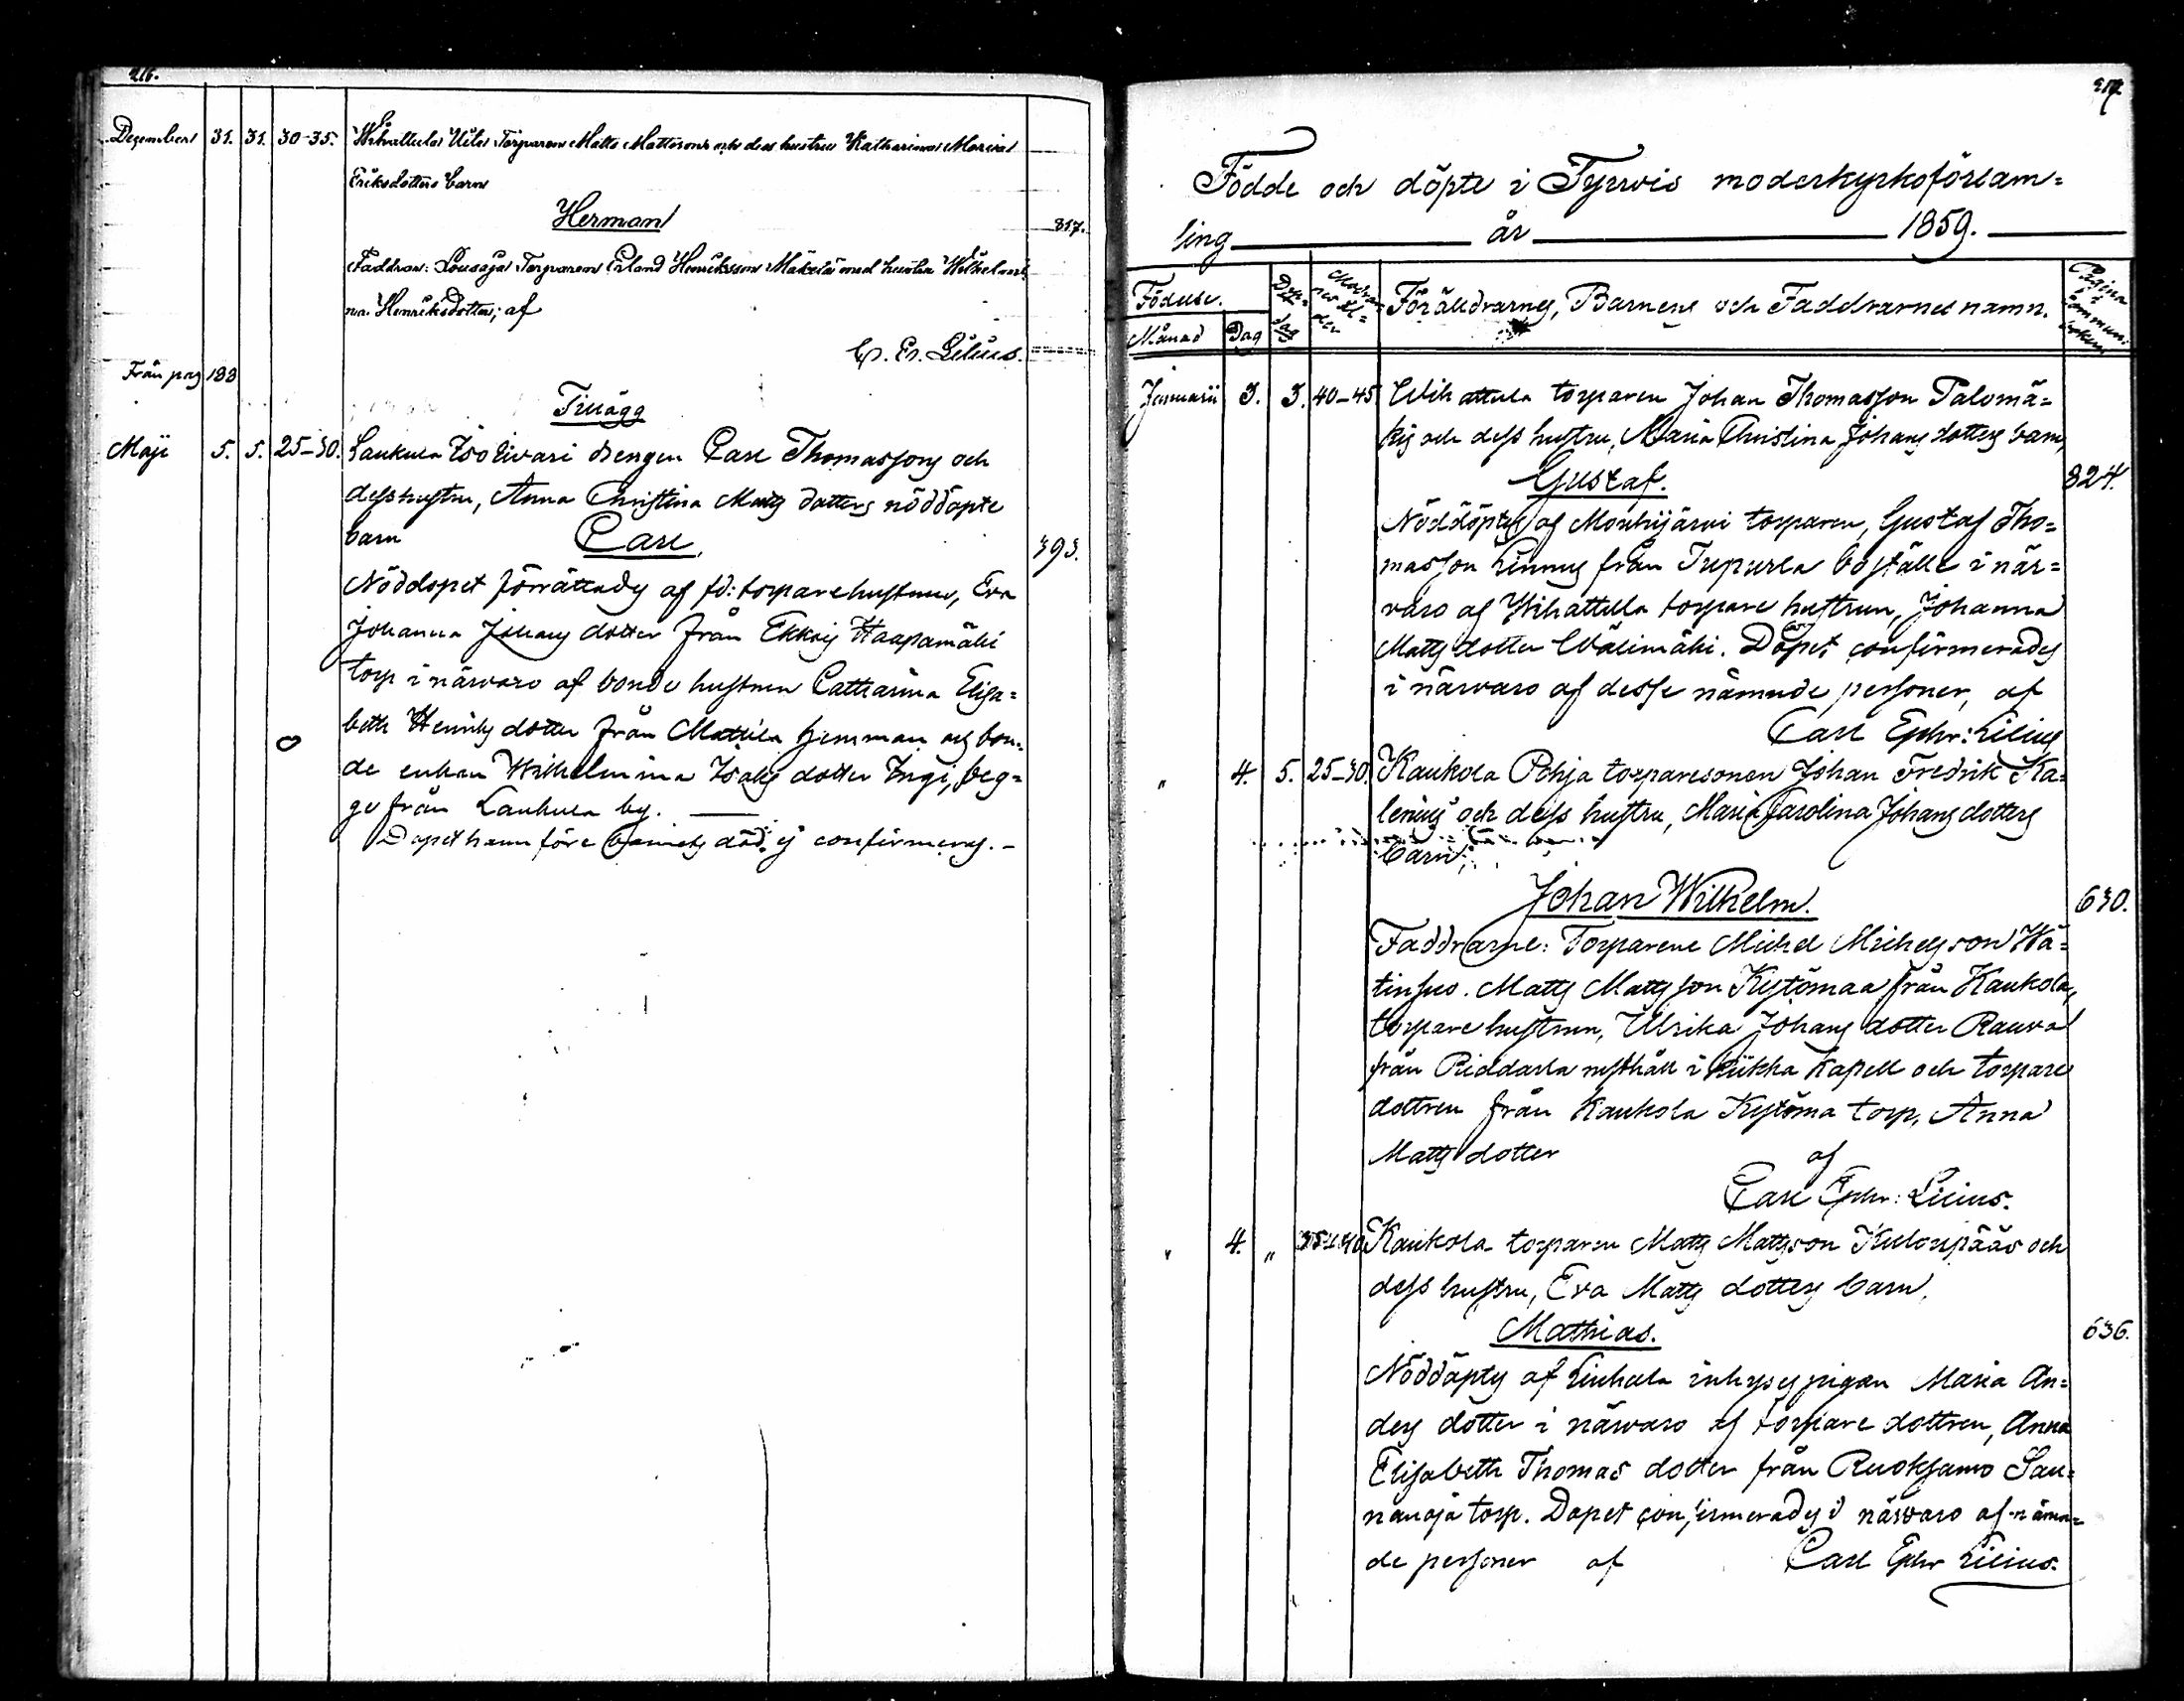 216.
December 31. 31. 30-35. Wihattula Uita Torparen Matts Mattssons och dess hustru Katharina Maria
Eriksdotters barn
Herman 817.
Faddrar: Torparen Erland Henriksson Mäkelä med hustru Wilhelmi
na Henriksdotter; af
C. E. Lilius.
Från pag 188
Tillägg
Maji 5. 5. 25-30. Laukula Iso Eivari drengen Carl Thomassons och
dess hustru, Anna Christina Matts dotters nöddöpte
barn Carl. 393.
Nöddopet förrättades af fd: torparehustrun, Eva
Johanna Johans dotter från Ekkois Haapamäki
torp i närvaro af bonde hustrun Catharina Elisa=
beth Henriks dotter från Mattila hemman och bon=
de enkan Wilhelmina Isaks dotter Ingi, beg=
ge från Laukula by.
Dopet hann före barnets död ej confirmeras.-
217
Födde och döpte i Tyrvis moderkyrkoförsam=
ling år 1859.
Födelse. Döp- Modrar-
nes ål-
der Föräldrarnes, Barnens och Faddrarnes namn. Pagina
i
communi-
Månad Dag dag
Januarii 3. 3. 40-45 Wihattula torparen Johan Thomasson Palomä=
kis och dess hustru, Maria Christina Johans dotters barn,
Gustaf. 824.
Nöddöptes af Mouhijärvi torparen, Gustaf Tho=
masson Linnus från Tupurla boställe i när=
varo af Wihattula torpare hustrun, Johanna
Matts dotter Wälimäki. Dopet confirmerades
i närvaro af desse nämnde personer, af
Carl Ephr: Lilius
" 4. 5. 25-30. Kaukola Pohja torparesonen Johan Fredrik Ka=
lenius och dess hustru, Maria Carolina Johans dotters
barn;
Johan Wilhelm. 630.
Faddrarne: Torparene Michel Michelsson Wä=
tinsuo. Matts Mattsson Kytömaa från Kaukola,
torpare hustrun, Ulrika Johans dotter Rauva
från Riddarla rusthåll i Kiikka Kapell och torpare
dottren från Kaukola Kytöma torp, Anna
Matts dotter af
Carl Ephr: Lilius.
" 4. " 35-40 Kaukola torparen Matts Mattsson Kulonpääs och
dess hustru, Eva Matts dotters barn,
Mathias. 636.
Nöddöptes af Liuhala inhyses pigan Maria An=
ders dotter i närvaro af torpare dottren, Anna
Elisabeth Thomas dotter från Ruoksamo Sau=
nanoja torp. Dopet confirmerades i närvaro af nämn=
de personer af Carl Ephr Lilius.